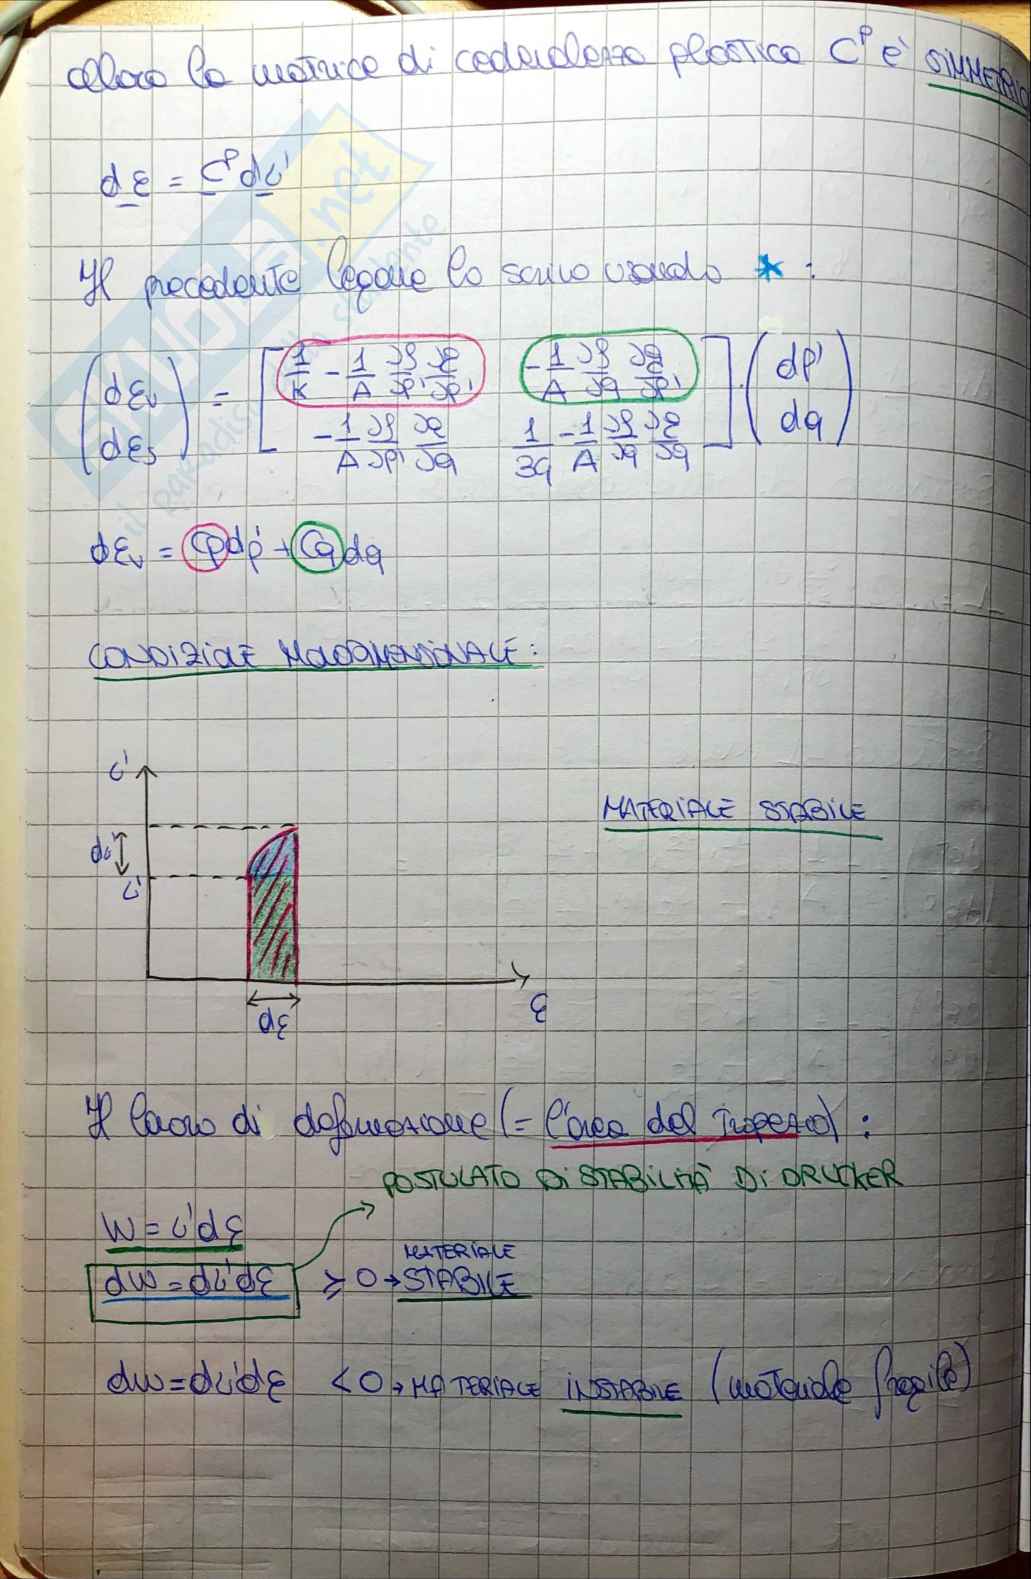 allora la matrice di cedevolezza plastica Cᵖ è SIMMETRICA
dε = Cᵖ dσ'
Il precedente legame lo scrivo usando * :
(dεv) = [1/K - 1/A ∂f/∂p' ∂g/∂p'   -1/A ∂f/∂q ∂g/∂p'] · (dp')
(dεs)   [-1/A ∂f/∂p' ∂g/∂q   1/3G - 1/A ∂f/∂q ∂g/∂q]   (dq)
dεv = Cp dp' + Cq dq
CONDIZIONE MONODIMENSIONALE:
σ'
MATERIALE STABILE
dσ'
σ'
dε
ε
Il lavoro di deformazione (= l'area del trapezio) :
POSTULATO DI STABILITÀ DI DRUCKER
W = σ'dε
MATERIALE
dW = dσ'dε ≥ 0 → STABILE
dW = dσ'dε < 0 → MATERIALE INSTABILE (materiale fragile)
SKUOLA.net
il paradiso dello studente